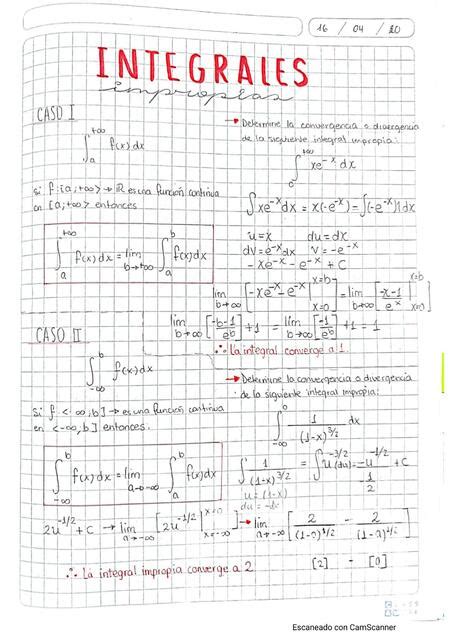 16 / 04 / 20
INTEGRALES
impropias
CASO I
∫_a^{+∞} f(x) dx
si f: [a; +∞> → ℝ es una función continua
en [a; +∞> entonces
∫_a^{+∞} f(x)dx = lim_{b→+∞} ∫_a^b f(x)dx
→ Determine la convergencia o divergencia
de la siguiente integral impropia:
∫_0^{+∞} xe^{-x} dx
∫xe^{-x}dx = x(-e^{-x}) - ∫(-e^{-x})1dx
u=x du=dx
dv=e^{-x}dx v=-e^{-x}
-xe^{-x} - e^{-x} + C
lim_{b→∞} [-xe^{-x} - e^{-x}]_{x=0}^{x=b} = lim_{b→∞} [(-x-1)/e^x]_{x=0}^{x=b}
lim_{b→∞} [(-b-1)/e^b] + 1 = lim_{b→∞} [-1/e^b] + 1 = 1
∴ La integral converge a 1.
CASO II
∫_{-∞}^b f(x) dx
Si f: <-∞; b] → es una función continua
en <-∞; b] entonces:
∫_{-∞}^b f(x)dx = lim_{a→-∞} ∫_a^b f(x)dx
→ Determine la convergencia o divergencia
de la siguiente integral impropia:
∫_{-∞}^0 1/(1-x)^{3/2} dx
∫ 1/(1-x)^{3/2} = ∫u^{-3/2}(du) = -u^{-1/2}/(-1/2) + C
u = (1-x)
du = -1x
2u^{-1/2} + C → lim_{a→-∞} [2u^{-1/2}]_{x=-∞}^{x=0} → lim_{a→-∞} [2/(1-0)^{1/2} - 2/(1-a)^{1/2}]
[2] - [0]
∴ La integral impropia converge a 2
Escaneado con CamScanner